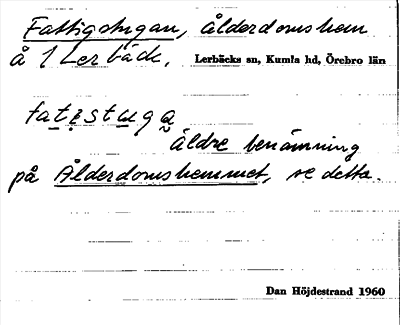 Fattigstugan, ålderdomshem
å 1 Lerbäck, Lerbäcks sn, Kumla hd, Örebro län
fatistuga
äldre benämning
på Ålderdomshemmet, se detta.
Dan Höjdestrand 1960